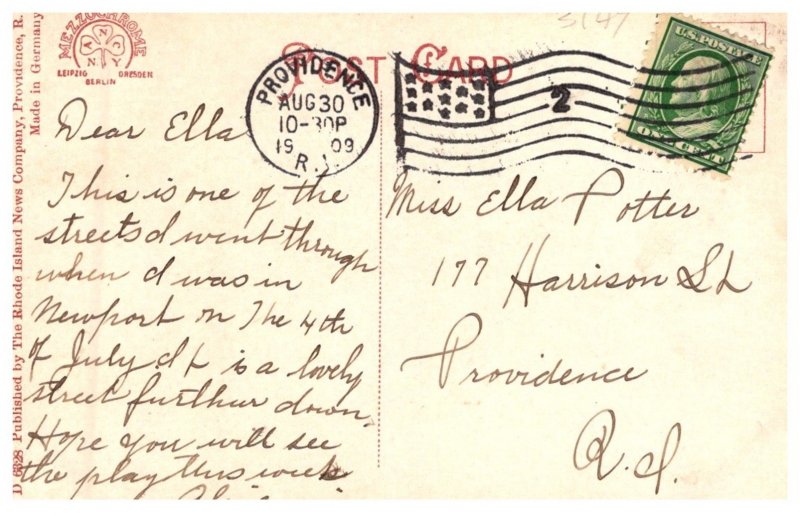 3147
MEZZOCHROME
ANCY
N
LEIPZIG DRESDEN
BERLIN
POST CARD
U.S. POSTAGE
ONE CENT
PROVIDENCE
AUG 30
10-30P
19 09
R.I.
2
D 6328 Published by The Rhode Island News Company, Providence, R.
Made in Germany
Dear Ella
This is one of the
streets I went through
when I was in
Newport on The 4th
of July It is a lovely
street furthur down.
Hope you will see
the play this week
Miss Ella Potter
177 Harrison St
Providence
R.I.